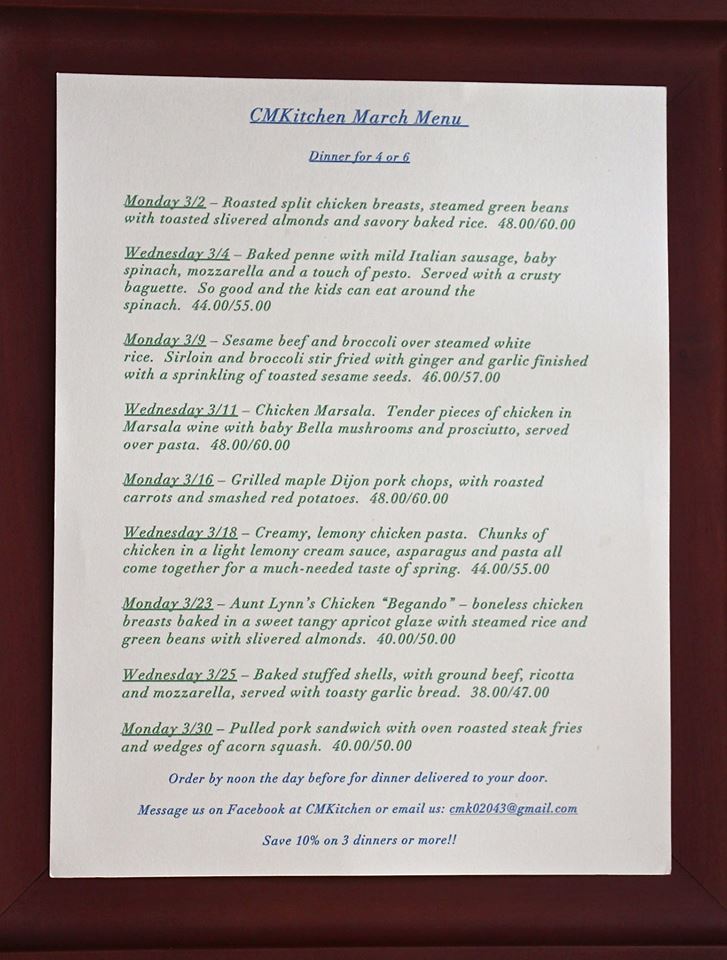 CMKitchen March Menu
Dinner for 4 or 6
Monday 3/2 – Roasted split chicken breasts, steamed green beans
with toasted slivered almonds and savory baked rice. 48.00/60.00
Wednesday 3/4 – Baked penne with mild Italian sausage, baby
spinach, mozzarella and a touch of pesto. Served with a crusty
baguette. So good and the kids can eat around the
spinach. 44.00/55.00
Monday 3/9 – Sesame beef and broccoli over steamed white
rice. Sirloin and broccoli stir fried with ginger and garlic finished
with a sprinkling of toasted sesame seeds. 46.00/57.00
Wednesday 3/11 – Chicken Marsala. Tender pieces of chicken in
Marsala wine with baby Bella mushrooms and prosciutto, served
over pasta. 48.00/60.00
Monday 3/16 – Grilled maple Dijon pork chops, with roasted
carrots and smashed red potatoes. 48.00/60.00
Wednesday 3/18 – Creamy, lemony chicken pasta. Chunks of
chicken in a light lemony cream sauce, asparagus and pasta all
come together for a much-needed taste of spring. 44.00/55.00
Monday 3/23 – Aunt Lynn's Chicken "Begando" – boneless chicken
breasts baked in a sweet tangy apricot glaze with steamed rice and
green beans with slivered almonds. 40.00/50.00
Wednesday 3/25 – Baked stuffed shells, with ground beef, ricotta
and mozzarella, served with toasty garlic bread. 38.00/47.00
Monday 3/30 – Pulled pork sandwich with oven roasted steak fries
and wedges of acorn squash. 40.00/50.00
Order by noon the day before for dinner delivered to your door.
Message us on Facebook at CMKitchen or email us: cmk02043@gmail.com
Save 10% on 3 dinners or more!!